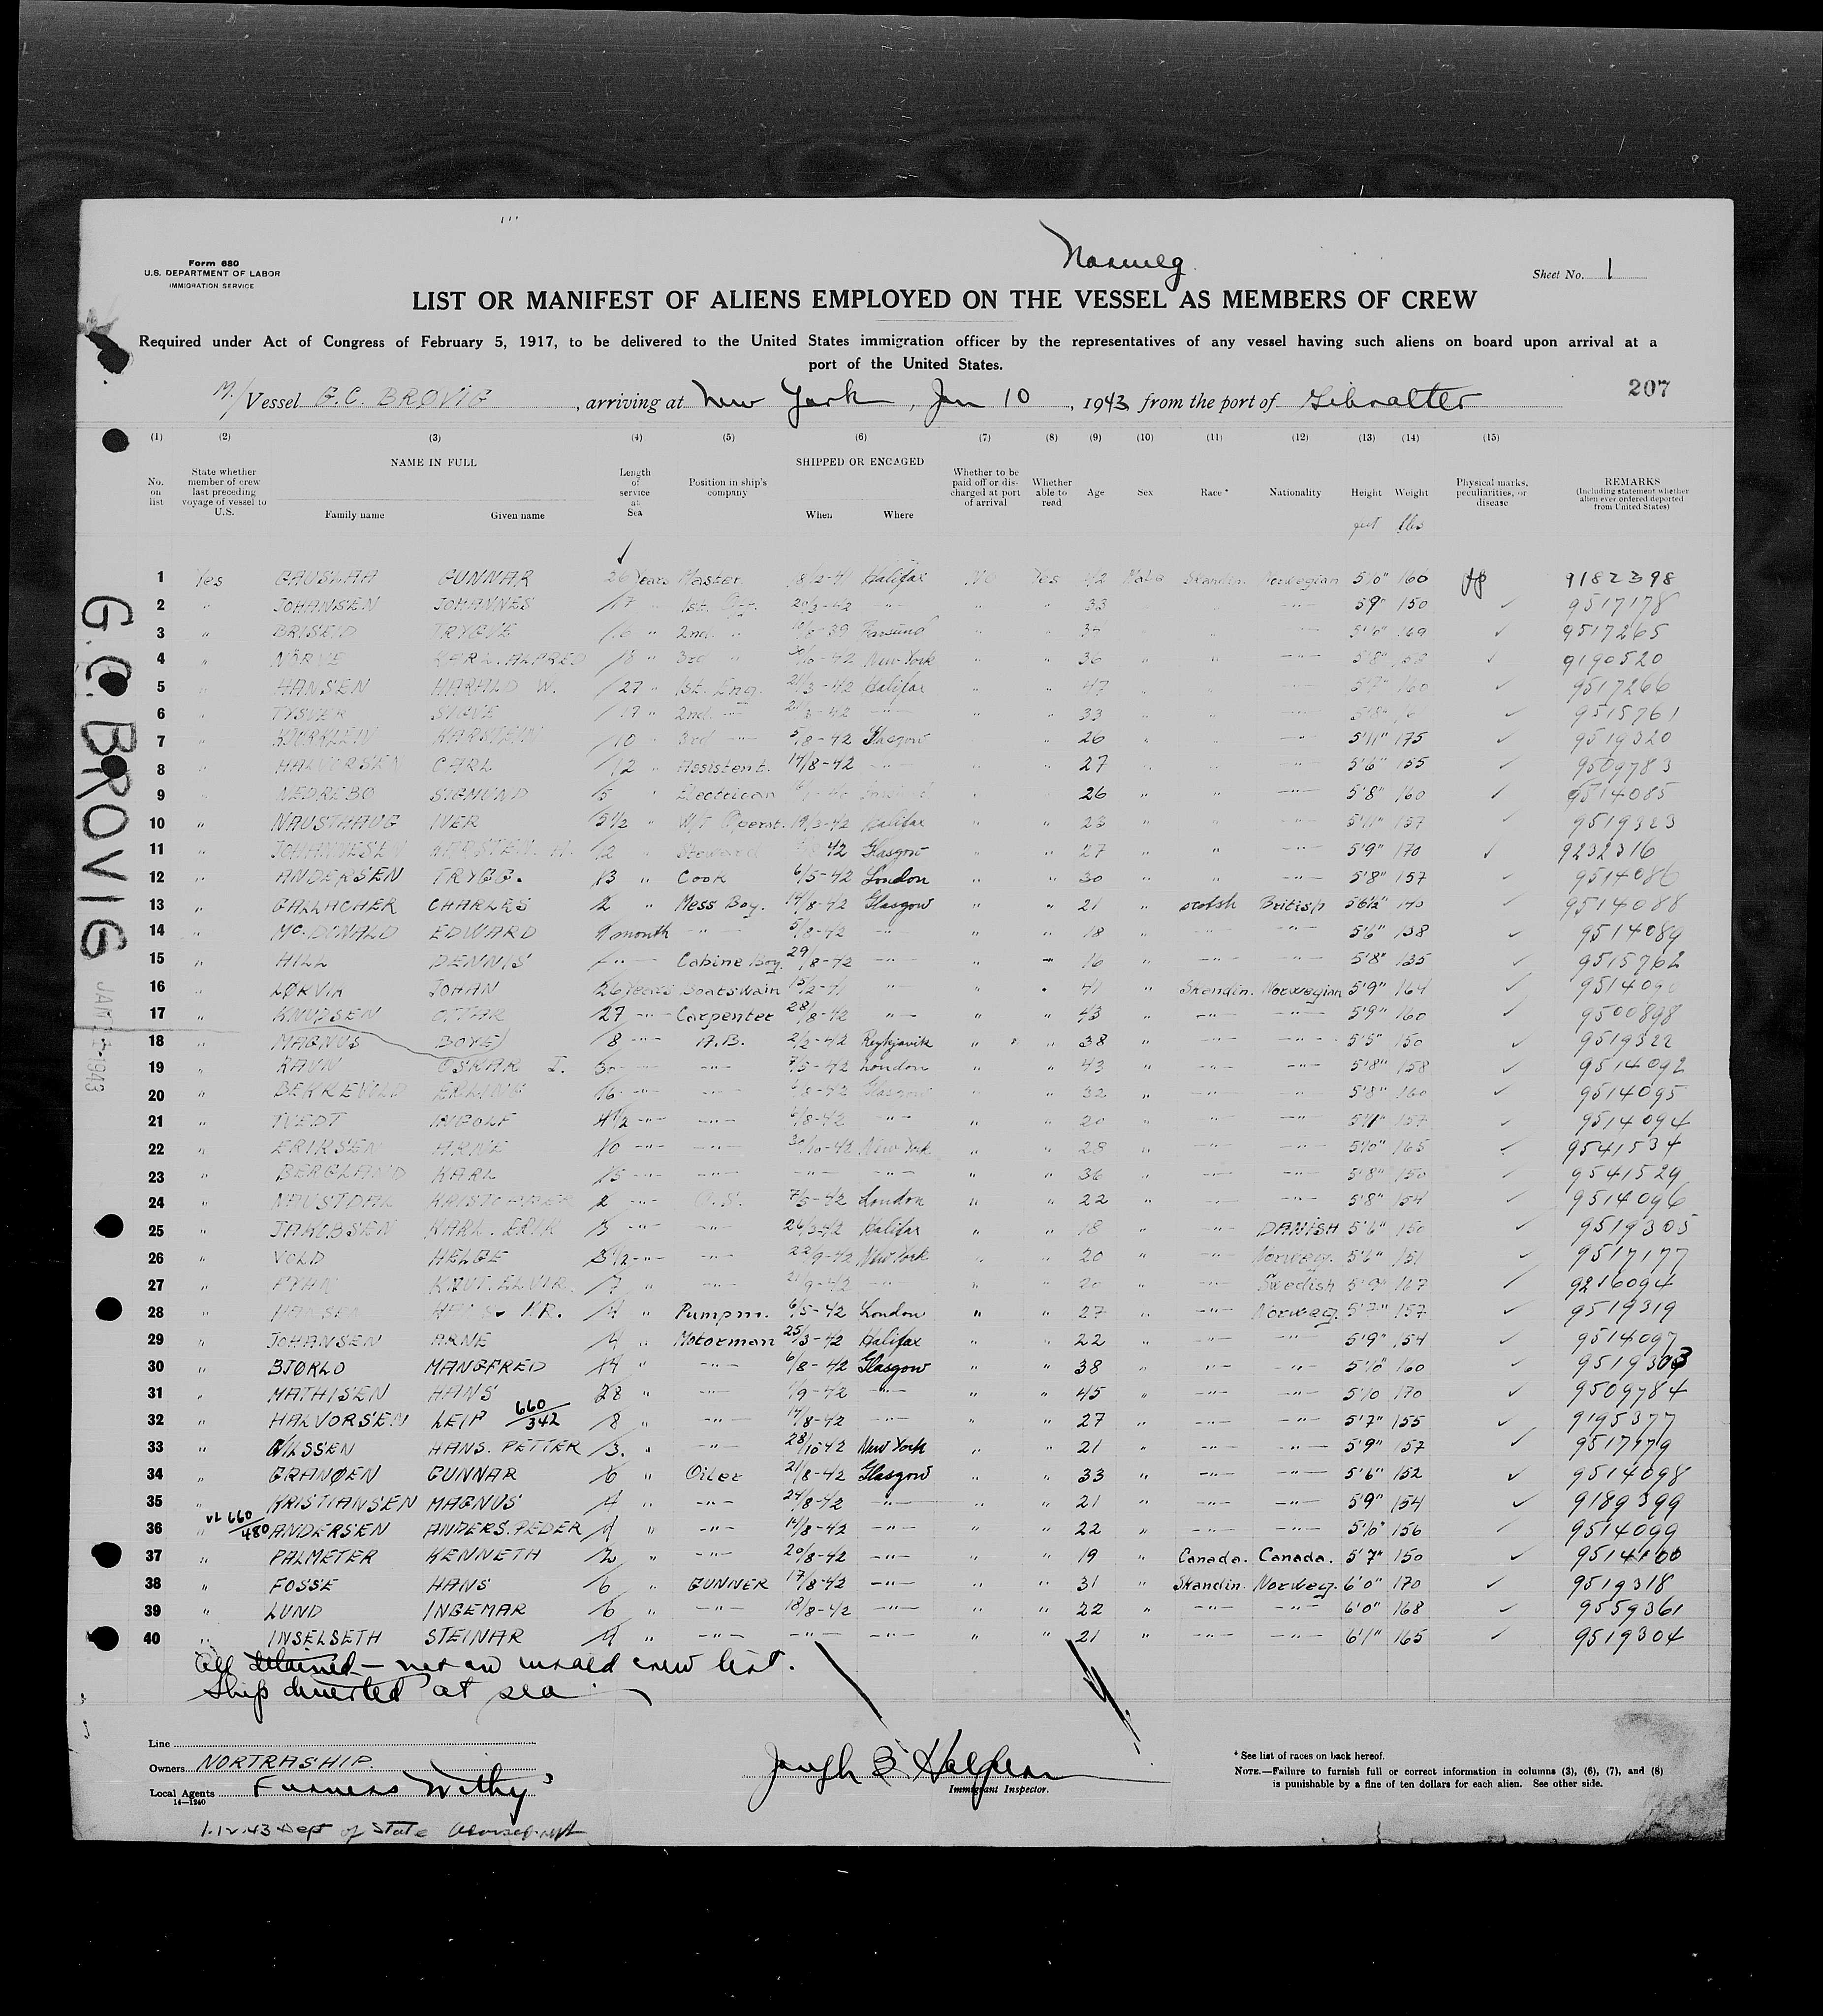 Norweg.
Form 680
U.S. DEPARTMENT OF LABOR
IMMIGRATION SERVICE
Sheet No. 1
LIST OR MANIFEST OF ALIENS EMPLOYED ON THE VESSEL AS MEMBERS OF CREW
Required under Act of Congress of February 5, 1917, to be delivered to the United States immigration officer by the representatives of any vessel having such aliens on board upon arrival at a
port of the United States.
M/Vessel G.C. BRØVIG, arriving at New York, Jan 10, 1943, from the port of Gibralter
207
(1) (2) (3) (4) (5) (6) (7) (8) (9) (10) (11) (12) (13) (14) (15)
No. on list
State whether member of crew last preceding voyage of vessel to U.S.
NAME IN FULL
Family name Given name
Length of service at Sea
Position in ship's company
SHIPPED OR ENGAGED
When Where
Whether to be paid off or discharged at port of arrival
Whether able to read
Age
Sex
Race*
Nationality
Height
Weight lbs
Physical marks, peculiarities, or disease
REMARKS
(Including statement whether alien ever ordered deported from United States)
1 Yes GUNNAR 26 Years Master Halifax No Yes 42 Male Skandin. Norwegian 5'10" 160 9182398
2 " JOHANSEN JOHANNES 17 " 1st. 20/3-42 -"- " " 33 -"- 5'9" 150 9517178
3 " BRISEID TRYGVE 10 " 2nd. " Farsund " " " " 169 9517265
4 " KARL. ALFRED 8 " 3rd " New York " " 36 " " -"- 5'8" 9190520
5 " HANSEN HARALD W. 27 " 1st. Eng. 21/3-42 Halifax " " 47 " " -"- 5'7" 160 9517266
6 " 17 " 2nd. -"- -"- " " 33 " " -"- 5'8" 9515761
7 " 10 " 3rd -"- 5/8-42 Glasgow " " 26 " " -"- 5'11" 175 9519320
8 " HALVORSEN CARL 12 " Assistent. 14/8-42 -"- " " 27 " " -"- 5'6" 155 9509783
9 " NEDREBO SIGMUND 5 " Electrican " 26 " " -"- 5'8" 160 9514085
10 " NAUSTHAUG IVER 5 1/2 " W/T Operat. 19/3-42 Halifax " " 23 " " -"- 5'11" 157 9519323
11 " JOHANNESEN 12 " Steward 42 Glasgow " " 27 " " -"- 5'9" 170 9232316
12 " ANDERSEN TRYGG. 13 " Cook 6/5-42 London " " 30 " " -"- 5'8" 157 9514086
13 " GALLACHER CHARLES 2 " Mess Boy. 14/8-42 Glasgow " " 21 " scotsh British 5'6½" 140 9514088
14 " Mc.DONALD EDWARD month -"- 5/8-42 -"- " " 18 " -"- -"- 5'6" 138 9514089
15 " HILL DENNIS -"- Cabine Boy. 29/8-42 -"- " " 16 " -"- -"- 5'8" 135 9515762
16 " LØKVIK JOHAN 26 Years Boatswain 15/2-41 -"- " " 41 " Skandin. Norwegian 5'9" 164
17 " KNUDSEN OTTAR 27 -"- Carpenter 28/8-42 -"- " " 43 " -"- -"- 5'9" 160 9500898
18 " MAGNUS BOYE 18 -"- A.B. 2/2-42 Reykjavik " " 38 " -"- -"- 5'5" 150 9519322
19 " RAVN OSKAR I. -"- -"- 7/5-42 London " " 43 " -"- -"- 5'8" 158 9514092
20 " BEKKEVOLD ERLING 16 -"- -"- Glasgow " " 32 " -"- -"- 5'8" 160 9514095
21 " TVEDT INGOLF 4½ -"- -"- 6/8-42 -"- " " 20 " -"- -"- 5'11" 157 9514094
22 " ERIKSEN ARNE 10 -"- -"- 30/10-42 New York " " 28 " -"- -"- 5'10" 165 9541534
23 " BERGLAND KARL 15 -"- -"- -"- -"- " " 36 " -"- -"- 5'8" 150 9541529
24 " 2 -"- O.S. 7/5-42 London " " 22 " -"- -"- 5'8" 154 9514096
25 " JAKOBSEN KARL. ERIK 3 -"- -"- 26/3-42 Halifax " " 18 " -"- DANISH 5'6" 150 9519305
26 " VOLD HELGE 3½ -"- -"- 22/9-42 New York " " 20 " -"- Norweg. 5'6" 151 9517177
27 " KNUT. 7 " -"- 21/9-42 -"- " " 20 " -"- Swedish 5'9" 167 9216094
28 " HANSEN KR. 4 " Pumpm. 6/5-42 London " " 27 " -"- Norweg. 5'7" 157 9519319
29 " JOHANSEN ARNE 4 " Motorman 25/3-42 Halifax " " 22 " -"- -"- 5'9" 154 9514097
30 " BJØRLO MANGFRED 14 " -"- 6/8-42 Glasgow " " 38 " -"- -"- 5'10" 160 9519303
31 " MATHISEN HANS 28 " -"- 1/9-42 -"- " " 45 " -"- -"- 5'10 170 9509784
32 " HALVORSEN LEIF 660/342 8 " -"- 14/8-42 -"- " " 27 " -"- -"- 5'7" 155 9195377
33 " NILSSEN HANS. PETTER 3. " -"- 28/10-42 New York " " 21 " -"- -"- 5'9" 157 9517179
34 " GRANØEN GUNNAR 6 " Oiler 21/8-42 Glasgow " " 33 " -"- -"- 5'6" 152 9514098
35 " KRISTIANSEN MAGNUS 4 " -"- 24/8-42 -"- " " 21 " -"- -"- 5'9" 154 9189399
36 " vL 660/480 ANDERSEN ANDERS. PEDER 4 " -"- 14/8-42 -"- " " 22 " -"- -"- 5'10" 156 9514099
37 " PALMETER KENNETH 2 " -"- 20/8-42 -"- " " 19 " Canada. Canada. 5'7" 150 9514100
38 " FOSSE HANS 6 " GUNNER 17/8-42 -"- " " 31 " Skandin. Norweg. 6'0" 170 9519318
39 " LUND INGEMAR 6 " -"- 18/8-42 -"- " " 22 " -"- -"- 6'0" 168 9559361
40 " INSELSETH STEINAR 4 " -"- -"- -"- " " 21 " -"- -"- 6'1" 165 9519304
All detained - not on visaed crew list.
Ship diverted at sea
Line
Owners NORTRASHIP.
Local Agents Furness Withy
14—1240
Joseph B. Halpern
Immigrant Inspector.
* See list of races on back hereof.
NOTE.—Failure to furnish full or correct information in columns (3), (6), (7), and (8)
is punishable by a fine of ten dollars for each alien. See other side.
1.12.43 Dept of State
G.C. BROVIG
JAN 1943